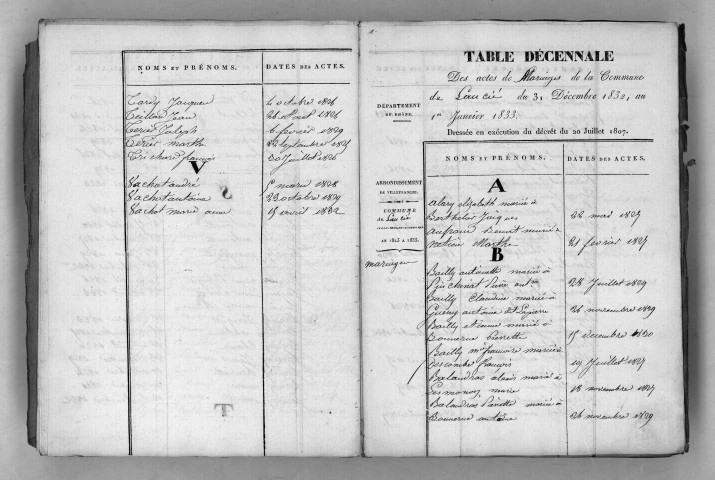 NOMS ET PRÉNOMS. DATES DES ACTES.
Tardy Jacques 4 octobre 1826
Teillard Jean 26 Aout 1826
Terier Joseph 6 fevrier 1829
Terier marthe 22 septembre 1825
Trichard françois 20 Juillet 1826
V
Vachot andré 5 mars 1828
Vachot antoine 23 octobre 1829
Vachot marie anne 15 avril 1832
TABLE DÉCENNALE
Des actes de Mariages de la Commune
de Lancié du 31 Décembre 1832, au
1er Janvier 1833.
Dressée en exécution du décret du 20 Juillet 1807.
DÉPARTEMENT
DU RHÔNE.
ARRONDISSEMENT
DE VILLEFRANCHE.
COMMUNE
de Lancié
EN 1823 A 1833.
mariages
NOMS ET PRÉNOMS. DATES DES ACTES.
A
alary elizabeth mariée à
Berthelier Jacques 22 mai 1827
aufrand Benoit marié à
Marthe 21 fevrier 1827
B
Bailly antoinette mariée à
Pierre 28 Juillet 1829
Bailly Claudine mariée à
antoine 26 novembre 1829
Bailly etienne marié à
Bonnerue Pierrette 15 decembre 1830
Bailly mie françoise mariée à
Descombe françois 19 Juillet 1827
Balandras alexis marié à
Desmoncey marie 18 novembre 1827
Balandras Pierrette mariée à
Bonnerue antoine 26 novembre 1829